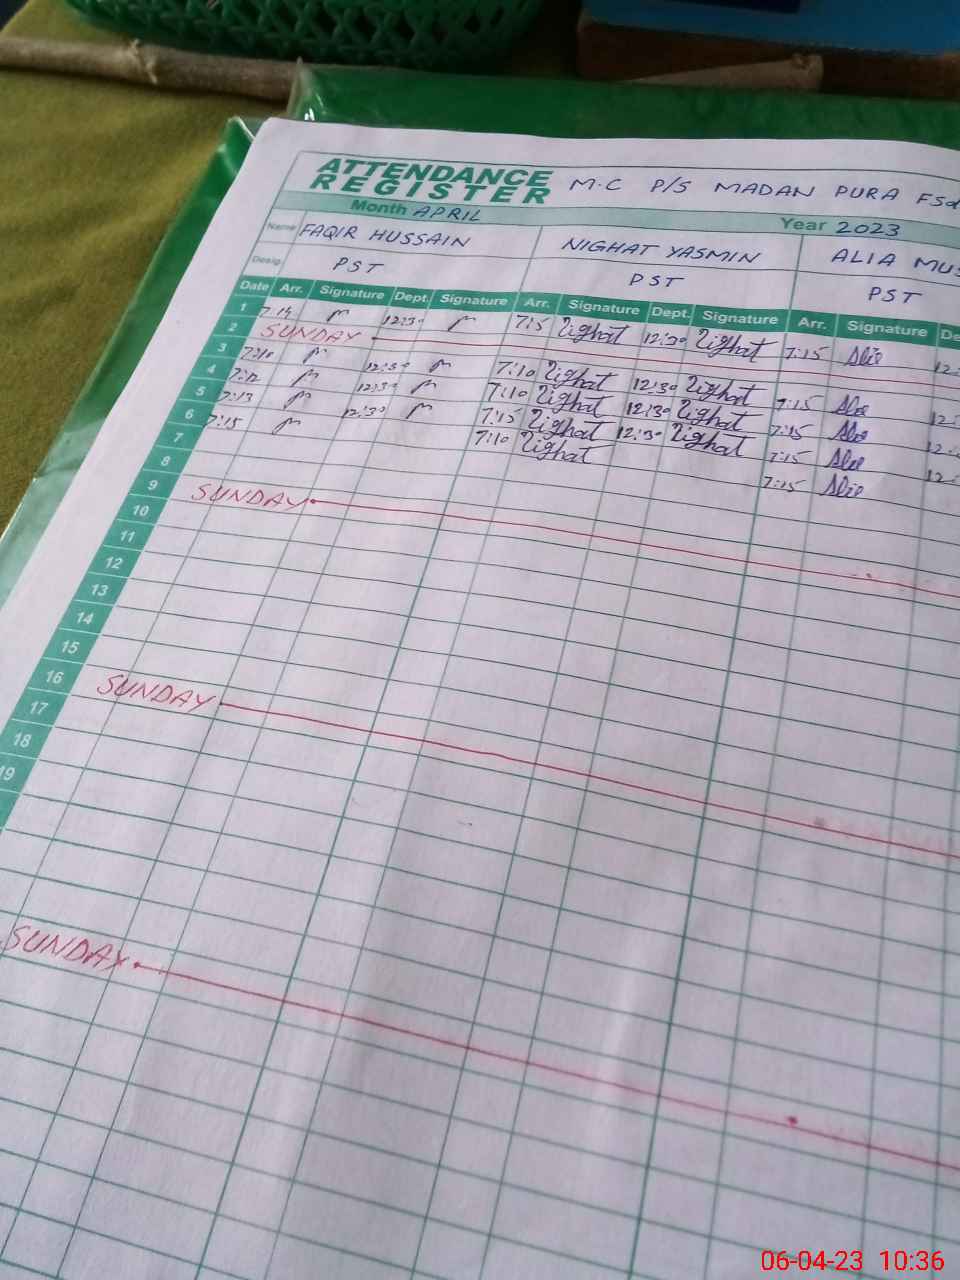 ATTENDANCE REGISTER M.C P/S MADAN PURA FSd
Month APRIL Year 2023
Name FAQIR HUSSAIN NIGHAT YASMIN ALIA MUS
Desig. PST PST PST
Date Arr. Signature Dept. Signature Arr. Signature Dept. Signature Arr. Signature De
1 7:14 12:30 7:15 Nighat 12:30 Nighat 7:15 Alia 12:
2 SUNDAY
3 7:10 12:30 7:10 Nighat 12:30 Nighat 7:15 Alia 12:
4 7:12 12:30 7:10 Nighat 12:30 Nighat 7:15 Alia 12:
5 7:13 12:30 7:15 Nighat 12:30 Nighat 7:15 Alia 12:
6 7:15 7:10 Nighat 7:15 Alia
7
8
9 SUNDAY
10
11
12
13
14
15
16 SUNDAY
17
18
19
SUNDAY
06-04-23 10:36